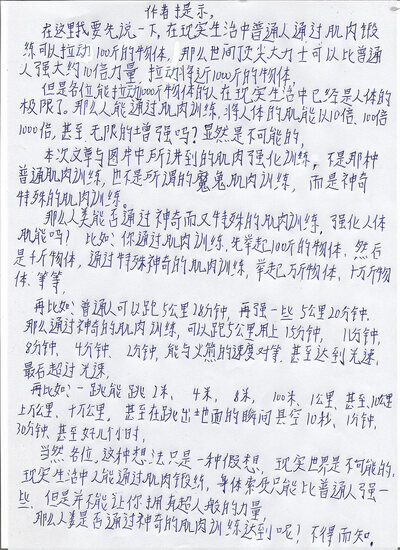 作者提示。
在这里我要先说一下,在现实生活中普通人通过肌肉锻
练可以拉动100斤的物体,那么世间顶尖大力士可以比普通
人强大约10倍力量,拉动将近1000斤的物体,
但是各位能拉动1000斤物体的人在现实生活中已经是人体的
极限了。那么人能通过肌肉训练,将人体的肌能以10倍、100倍
1000倍,甚至无限的增强吗?显然是不可能的,
本次文章与图片中所讲到的肌肉强化训练,不是那种
普通肌肉训练,也不是所谓的魔鬼肌肉训练,而是神奇
特殊的肌肉训练。
那么人类能否通过神奇而又特殊的肌肉训练,强化人体
肌能吗?比如:你通过肌肉训练,先举起100斤的物体、然后
是千斤物体,通过特殊神奇的肌肉训练,举起万斤物体、十万斤物
体、等等,
再比如:普通人可以跑5公里28分钟,再强一些5公里20分钟,
那么通过神奇的肌肉训练,可以跑5公里用上15分钟,11分钟,
8分钟、4分钟、2分钟,能与火箭的速度对等,甚至达到光速,
最后超过光速,
再比如:一跳能跳2米、4米,8米,100米、1公里,甚至10公里
上万公里、十万公里,甚至在跳出地面的瞬间悬空10秒、1分钟,
30分钟、甚至好几个小时,
当然各位,这种想法只是一种假想,现实世界是不可能的,
现实生活中人能通过肌肉锻练,身体素质只能比普通人强一
些,但是并不能让你拥有超人般的力量
那么人类是否通过神奇的肌肉训练达到呢?不得而知。